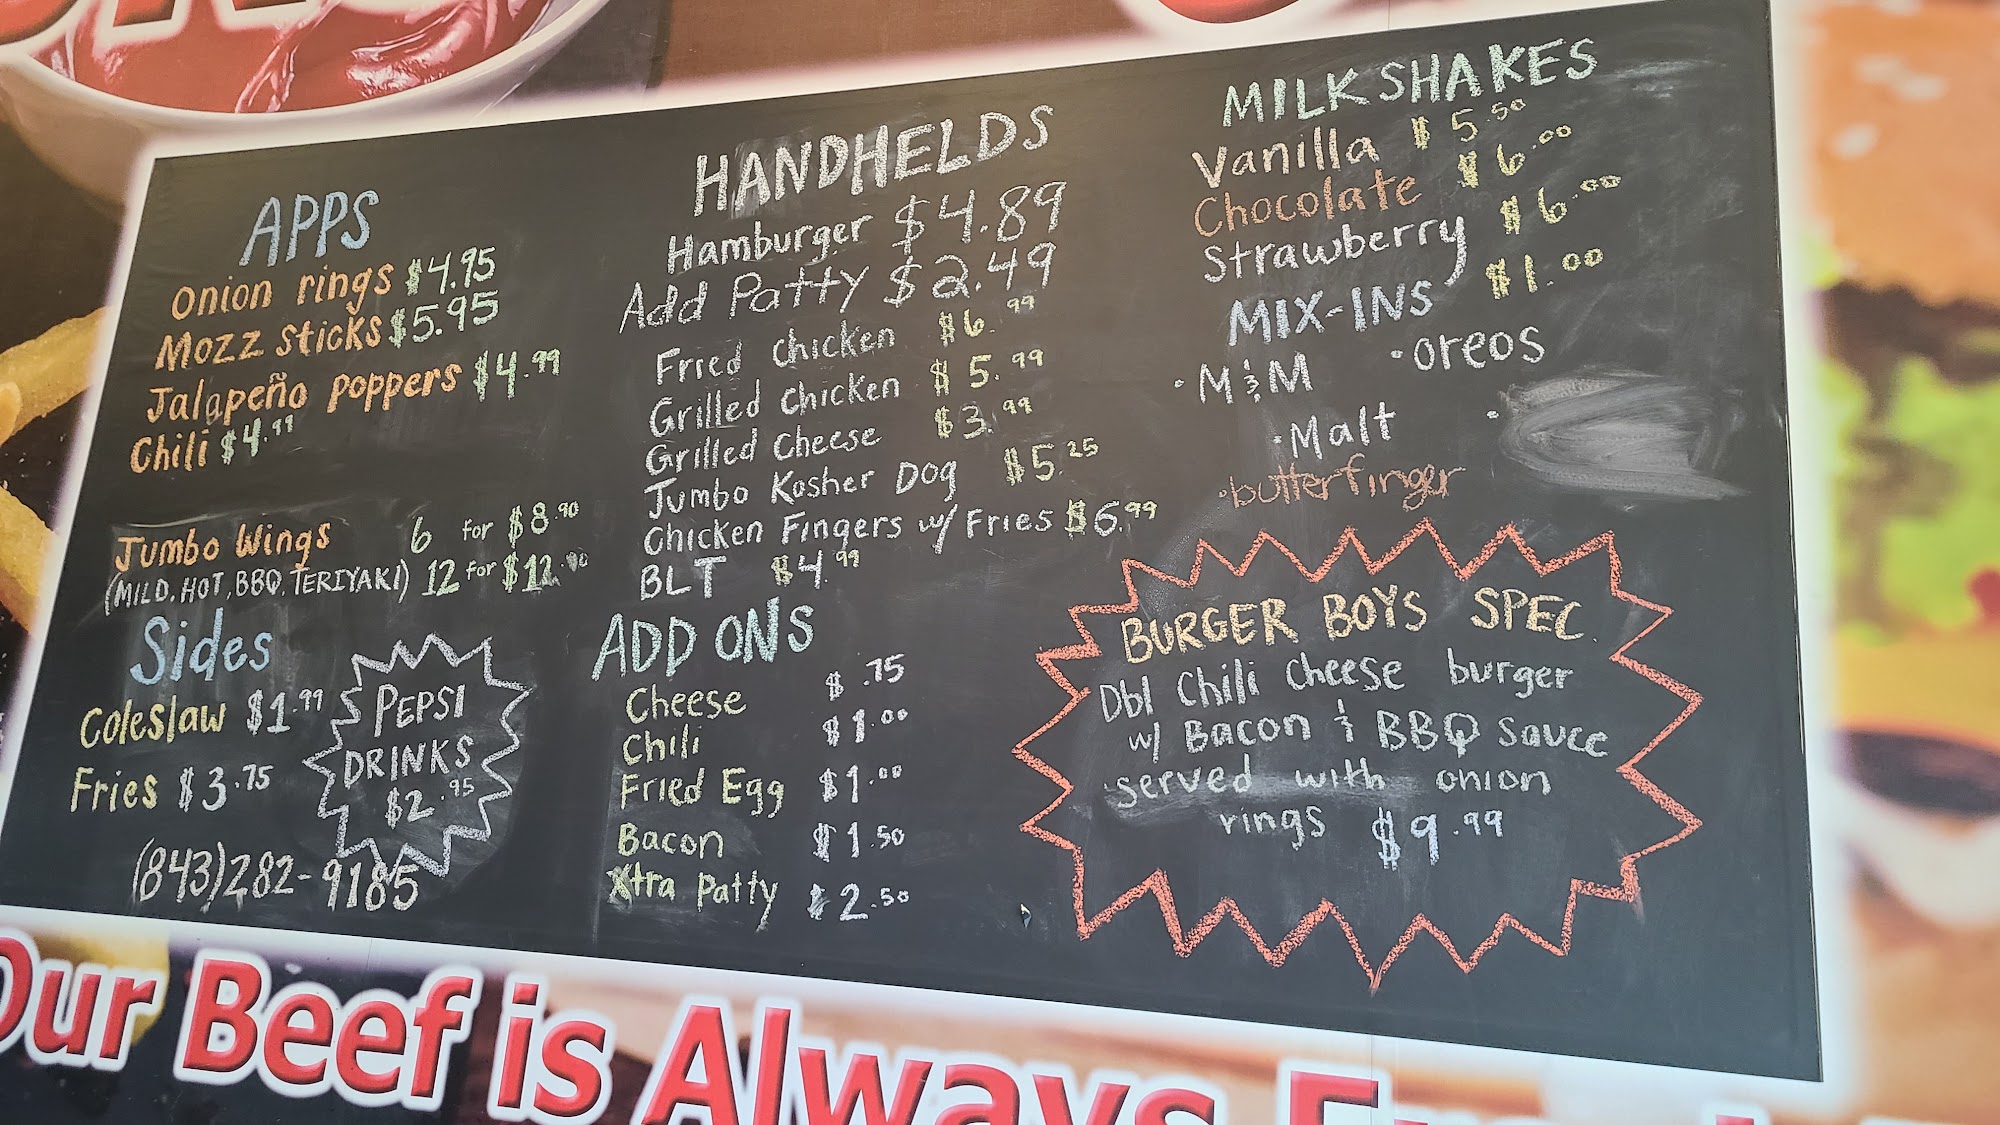 APPS
Onion rings $4.95
Mozz sticks $5.95
Jalapeño poppers $4.99
Chili $4.99
Jumbo Wings 6 for $8.90
(MILD, HOT, BBQ, TERIYAKI) 12 for $12.90
Sides
Coleslaw $1.99
Fries $3.75
PEPSI
DRINKS
$2.95
(843)282-9185
HANDHELDS
Hamburger $4.89
Add Patty $2.49
Fried Chicken $6.99
Grilled Chicken $5.99
Grilled Cheese $3.99
Jumbo Kosher Dog $5.25
Chicken Fingers w/ Fries $6.99
BLT $4.99
ADD ONS
Cheese $.75
Chili $1.00
Fried Egg $1.00
Bacon $1.50
Xtra Patty $2.50
MILKSHAKES
Vanilla $5.50
Chocolate $6.00
Strawberry $6.00
MIX-INS $1.00
· M&M · Oreos
· Malt ·
· butterfinger
BURGER BOYS SPEC.
Dbl Chili Cheese burger
w/ Bacon & BBQ Sauce
served with onion
rings $9.99
Our Beef is Always